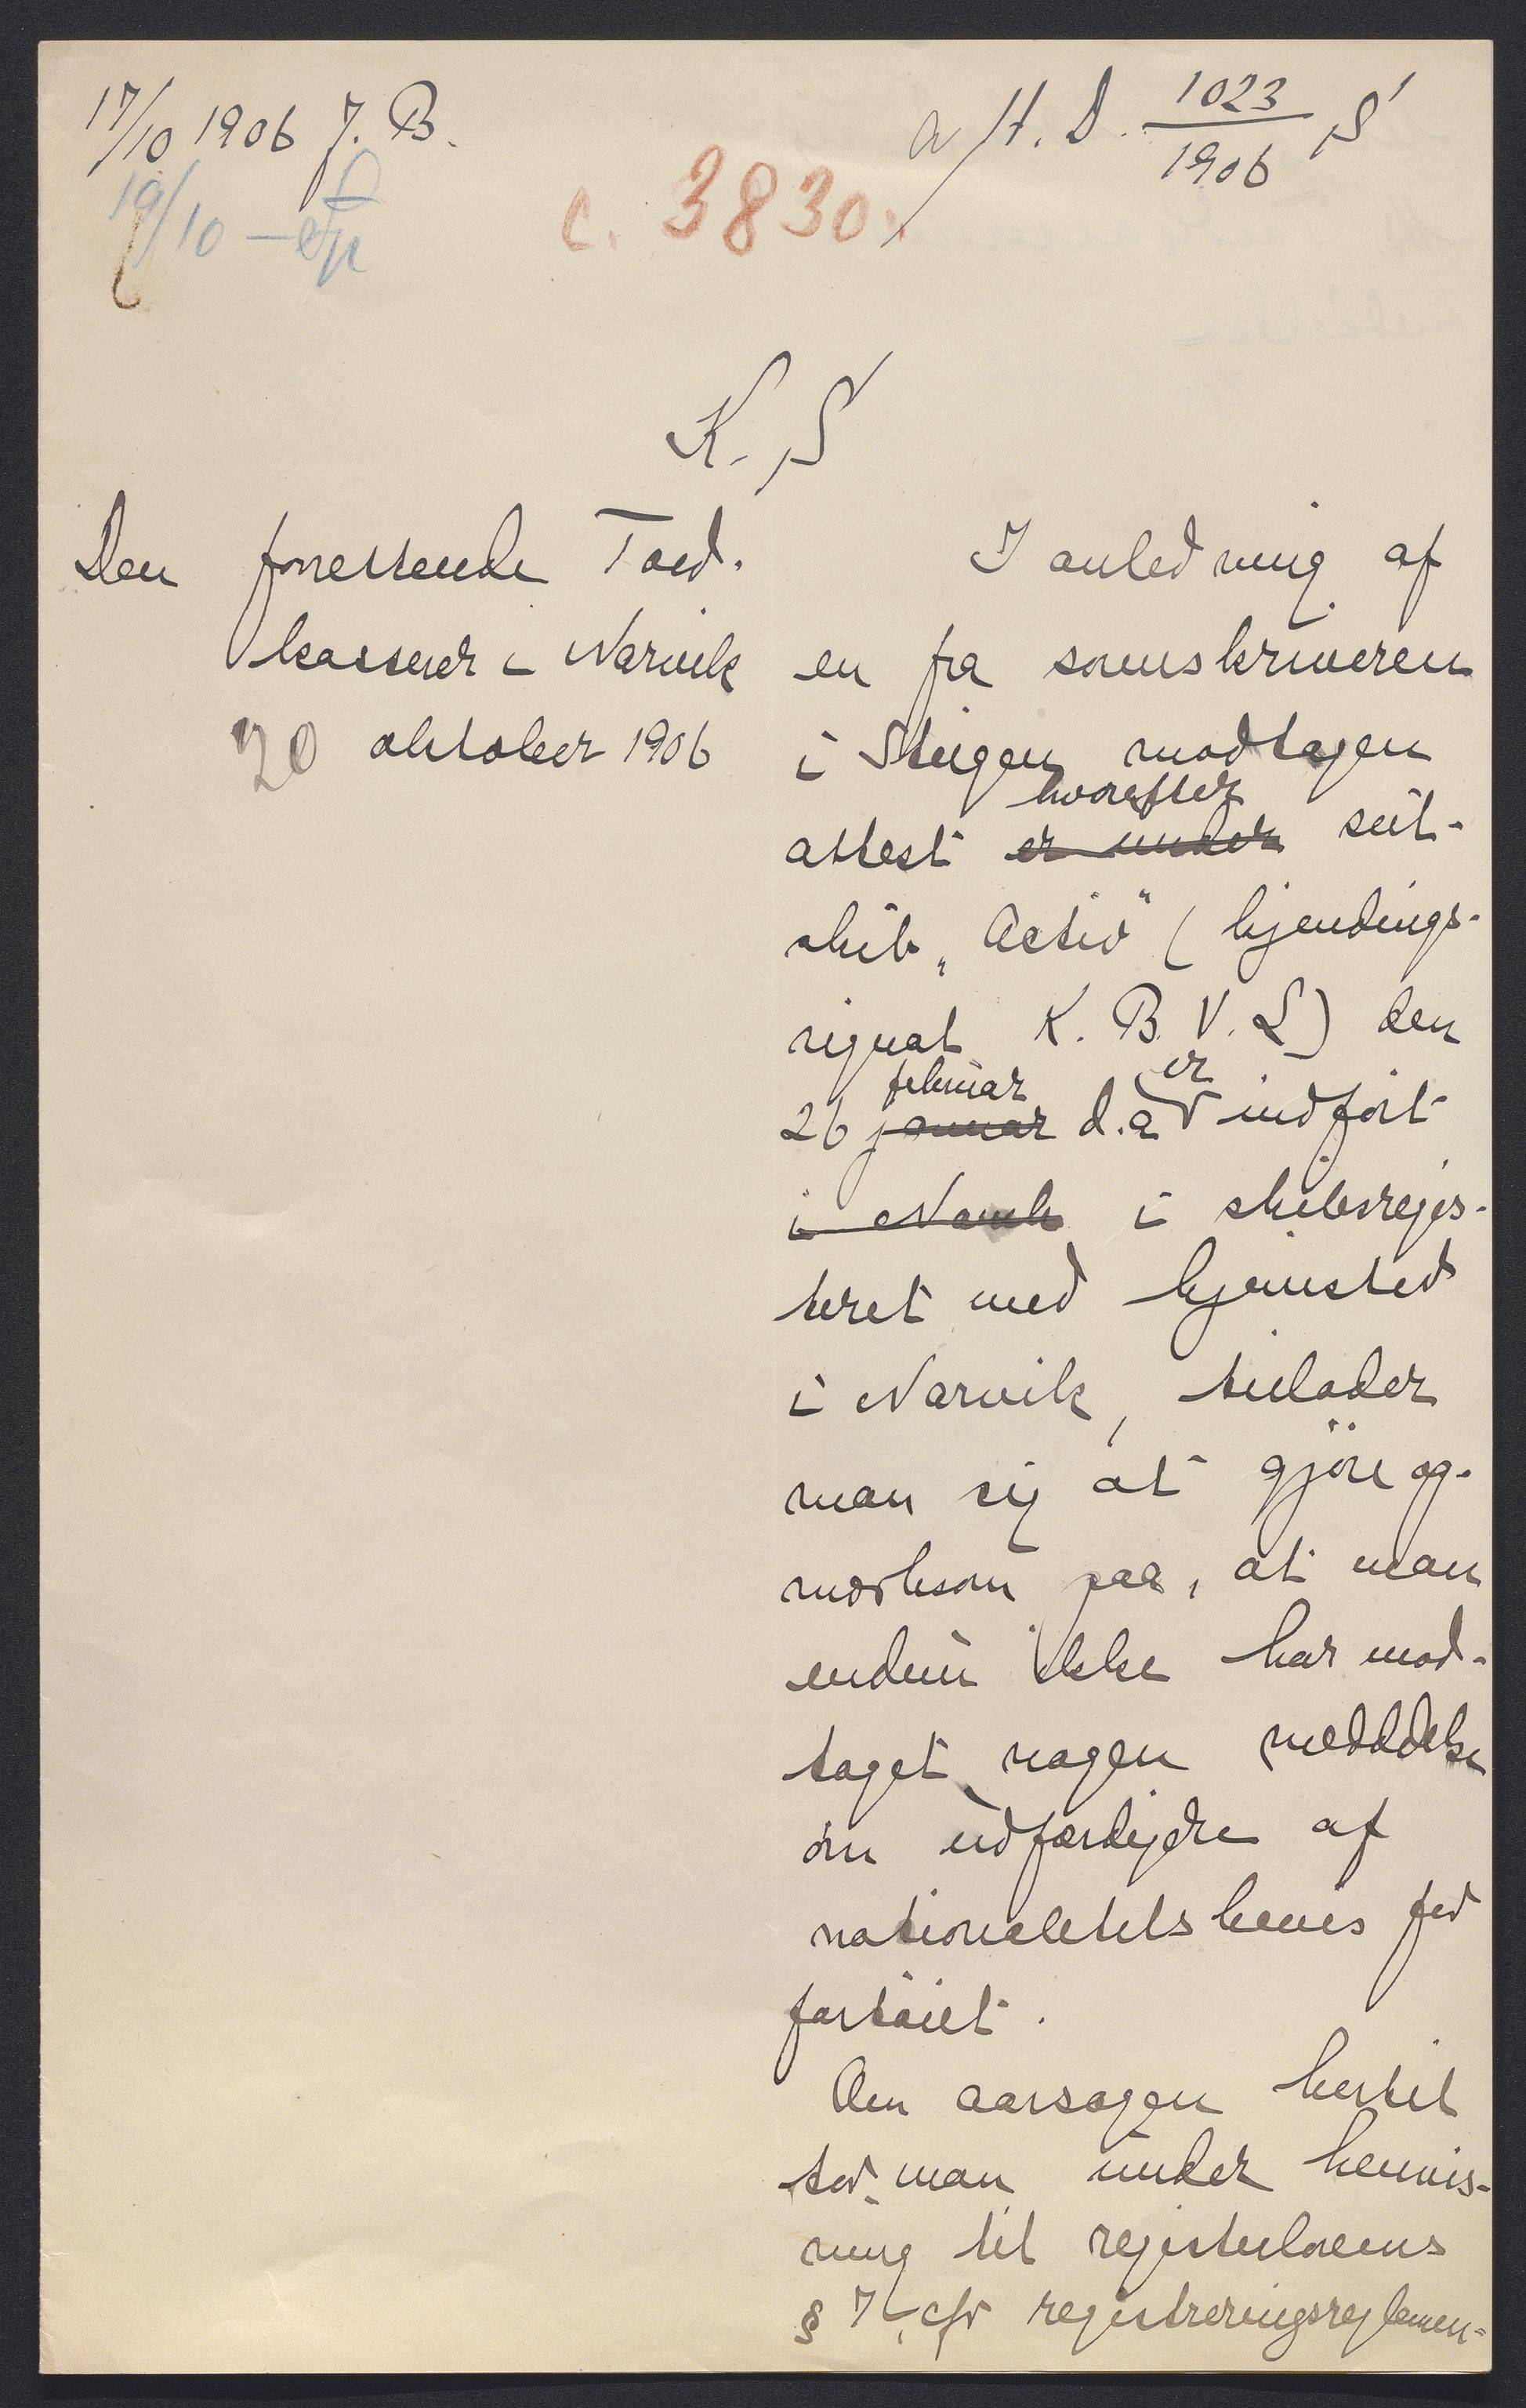 17/10 1906 J. B.
a/H. D. 1023/1906 S
19/10 —
c. 3830.
K. S
Den forrettende Told-
kasserer i Narvik
20 oktober 1906
I anledning af
en fra sorenskriveren
i Steigen modtagen
attest er under hvorefter seil-
skib „Activ" (kjendings-
signal K. B. V. L) den
26 januar februar d.a. er indført
i Narvik i skibsregis-
teret med hjemsted
i Narvik, tillader
man sig at gjøre op-
mærksom paa, at man
endnu ikke har mod-
taget nogen meddelelse
om udfærdigelse af
nationalitetsbevis for
fartøiet.
Om aarsagen hertil
tør man under henvis-
ning til registerlovens
§ 7, cfr registreringsreglemen-